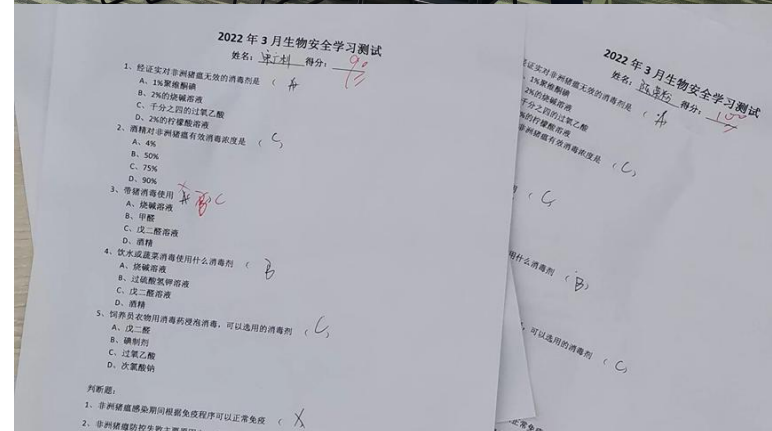 2022 年 3 月生物安全学习测试
姓名: 得分: 90
1、经证实对非洲猪瘟无效的消毒剂是 ( A
A、1%聚维酮碘
B、2%的烧碱溶液
C、千分之四的过氧乙酸
D、2%的柠檬酸溶液
2、酒精对非洲猪瘟有效消毒浓度是 ( C )
A、4%
B、50%
C、75%
D、90%
3、带猪消毒使用 A B C
A、烧碱溶液
B、甲醛
C、戊二醛溶液
D、酒精
4、饮水或蔬菜消毒使用什么消毒剂 ( B
A、烧碱溶液
B、过硫酸氢钾溶液
C、戊二醛溶液
D、酒精
5、饲养员衣物用消毒药浸泡消毒,可以选用的消毒剂 ( C )
A、戊二醛
B、碘制剂
C、过氧乙酸
D、次氯酸钠
判断题:
1、非洲猪瘟感染期间根据免疫程序可以正常免疫 ( X
2、非洲猪瘟防控失败主要
2022 年 3 月生物安全学习测试
姓名: 得分: 100
证实对非洲猪瘟无效的消毒剂是 ( A
1%聚维酮碘
2%的烧碱溶液
千分之四的过氧乙酸
%的柠檬酸溶液
非洲猪瘟有效消毒浓度是 ( C )
( C
用什么消毒剂 ( B )
可以选用的消毒剂 ( C )
正常免疫